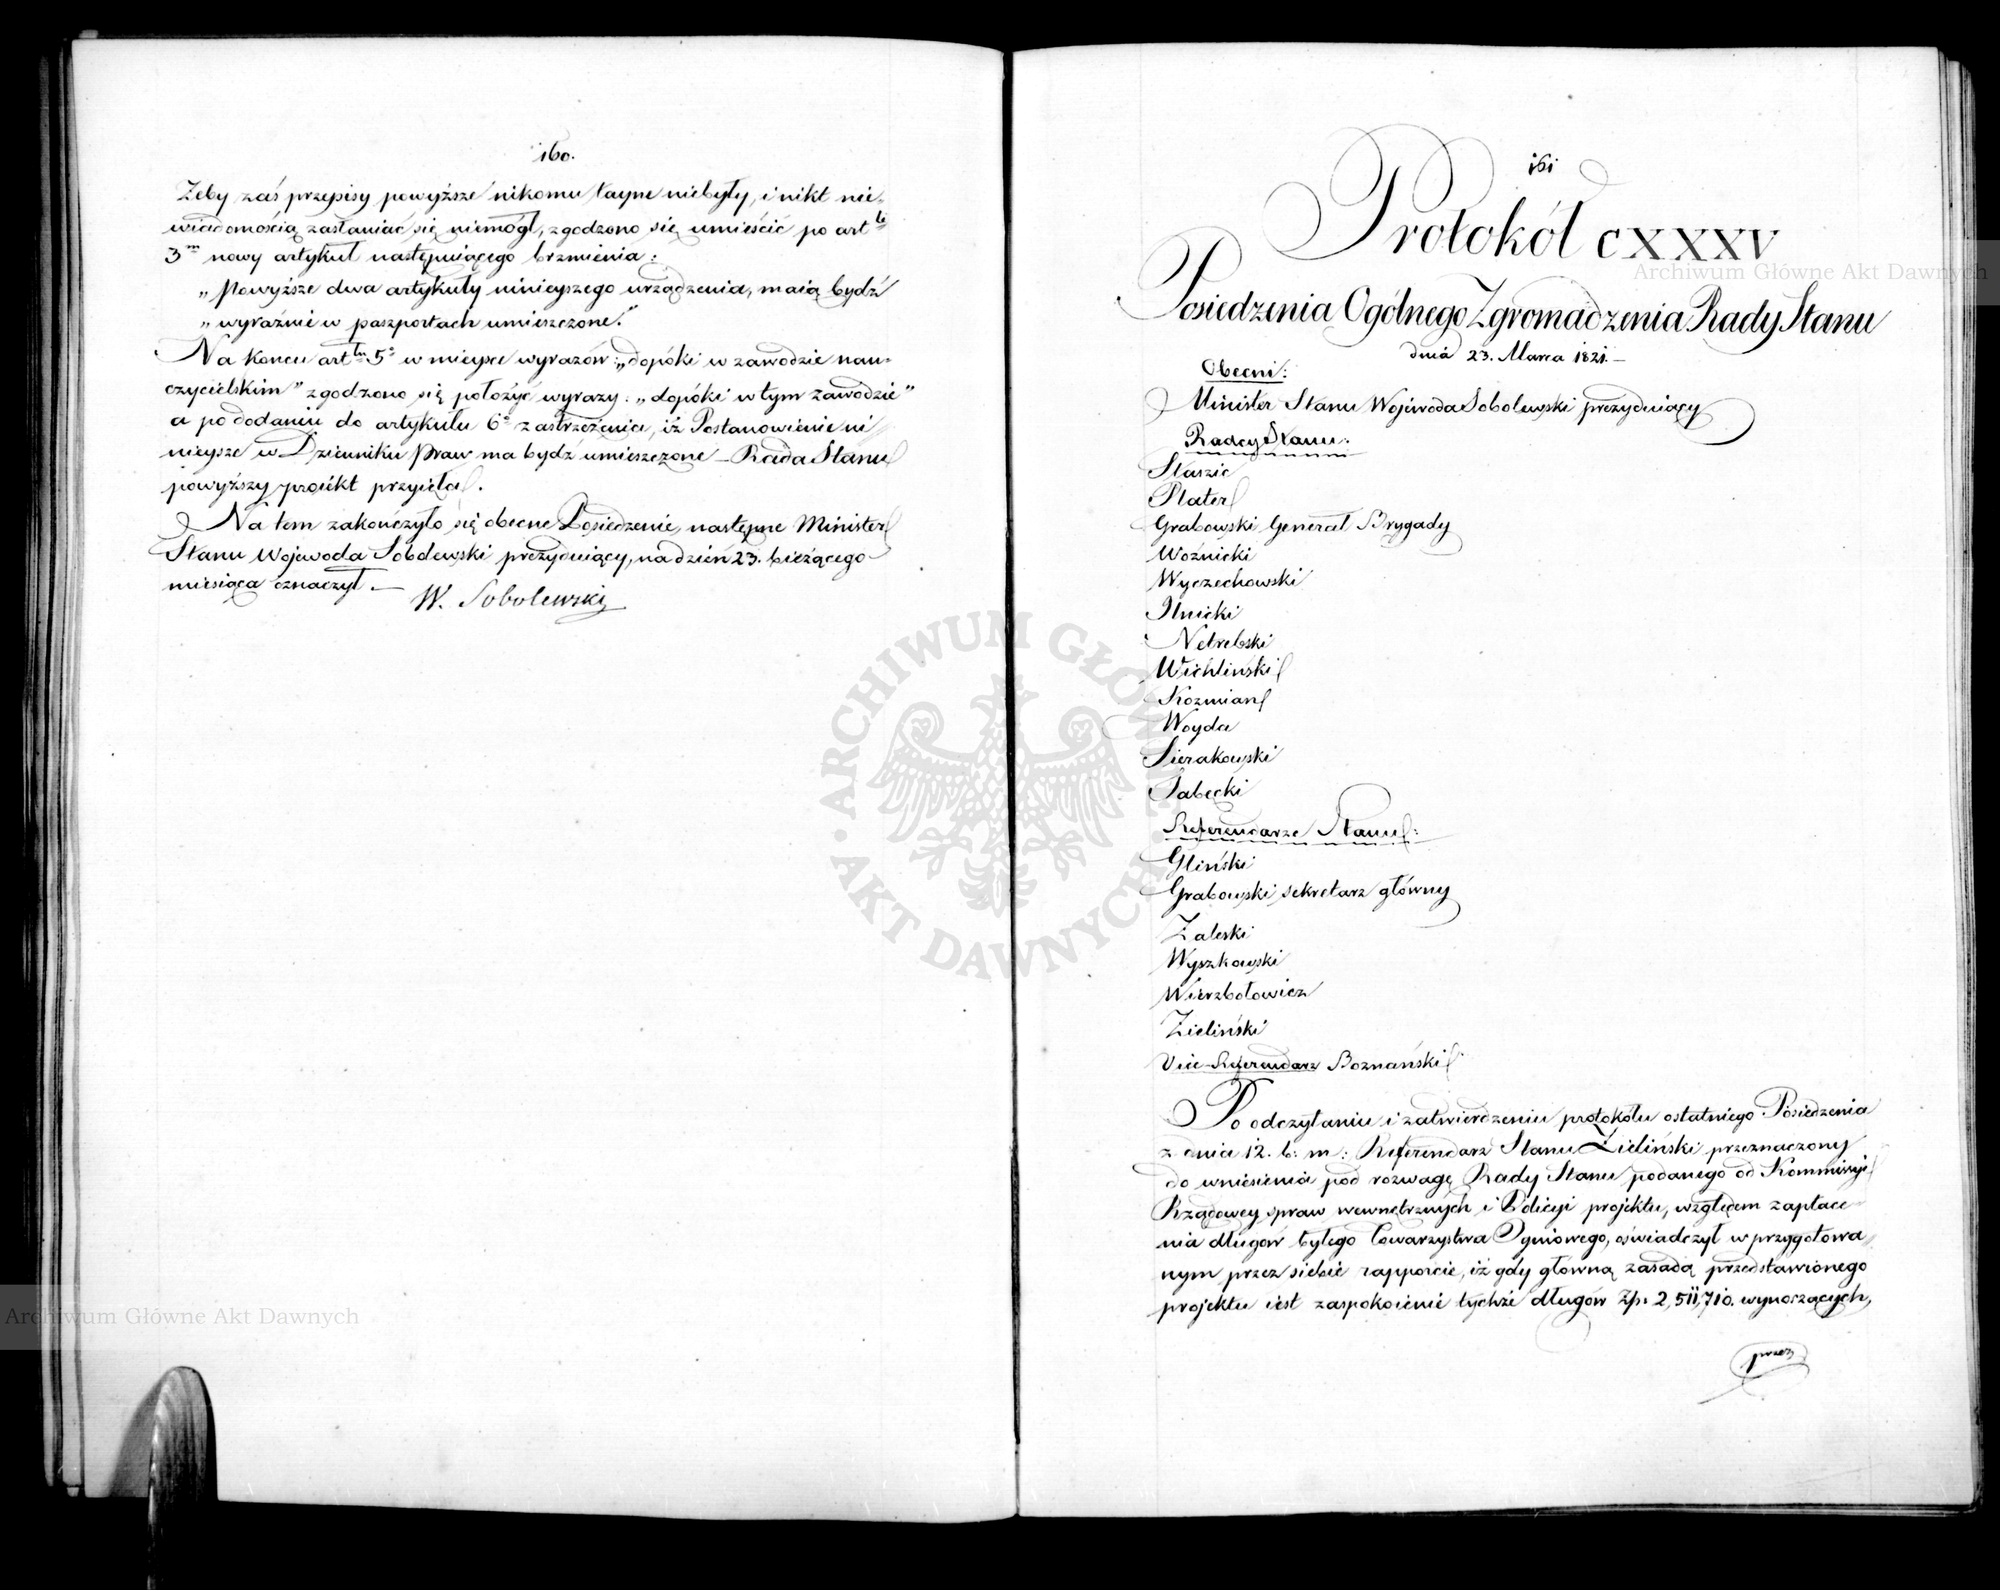 160.
Żeby zaś przepisy powyższe nikomu tayne niebyły, i nikt nie-
wiadomością zasłaniać się niemógł, zgodzono się umieścić po art
3m nowy artykuł następuiącego brzmienia:
„Powyższe dwa artykuły ninieyszego urządzenia, maią bydź
„wyraźnie w paszportach umieszczone."
Na końcu artłu 5o w mieysce wyrazów: „dopóki w zawodzie nau-
czycielskim" zgodzono się położyć wyrazy: „dopóki w tym zawodzie"
a po dodaniu do artykułu 6o zastrzeżenia, iż Postanowienie ni-
nieysze w Dzienniku Praw ma bydź umieszczone – Rada Stanu
powyższy proiekt przyięła.
Na tem zakończyło się obecne Posiedzenie, następne Minister
Stanu Wojewoda Sobolewski prezyduiący, na dzień 23. bieżącego
miesiąca oznaczył. —
W. Sobolewski
161
Protokół CXXXV
Posiedzenia Ogólnego Zgromadzenia Rady Stanu
dnia 23. Marca 1821. –
Obecni:
Minister Stanu Wojewoda Sobolewski prezyduiący
Radcy Stanu:
Staszic
Plater
Grabowski Generał Brygady
Woźnicki
Wyczechowski
Ilnicki
Netrebski
Wichliński
Kozmian
Woyda
Sierakowski
Łabęcki
Referendarze Stanu:
Gliński
Grabowski sekretarz główny
Zaleski
Wyszkowski
Wierzbołowicz
Zieliński
Vice-Referendarz Boznański
Po odczytaniu i zatwierdzeniu protokółu ostatniego Posiedzenia
z dnia 12. b: m: Referendarz Stanu Zieliński przeznaczony
do wniesienia pod rozwagę Rady Stanu podanego od Kommissyi
Rządowey spraw wewnętrznych i Policyi projektu, względem zapłace-
nia długów byłego Towarzystwa Ogniowego, oświadczył w przygotowa-
nym przez siebie rapporcie, iż gdy główną zasadą przedstawionego
projektu iest zaspokoienie tychże długów Złp. 2,511,710. wynoszących,
przez
Archiwum Główne Akt Dawnych
ARCHIWUM GŁÓWNE AKT DAWNYCH
Archiwum Główne Akt Dawnych